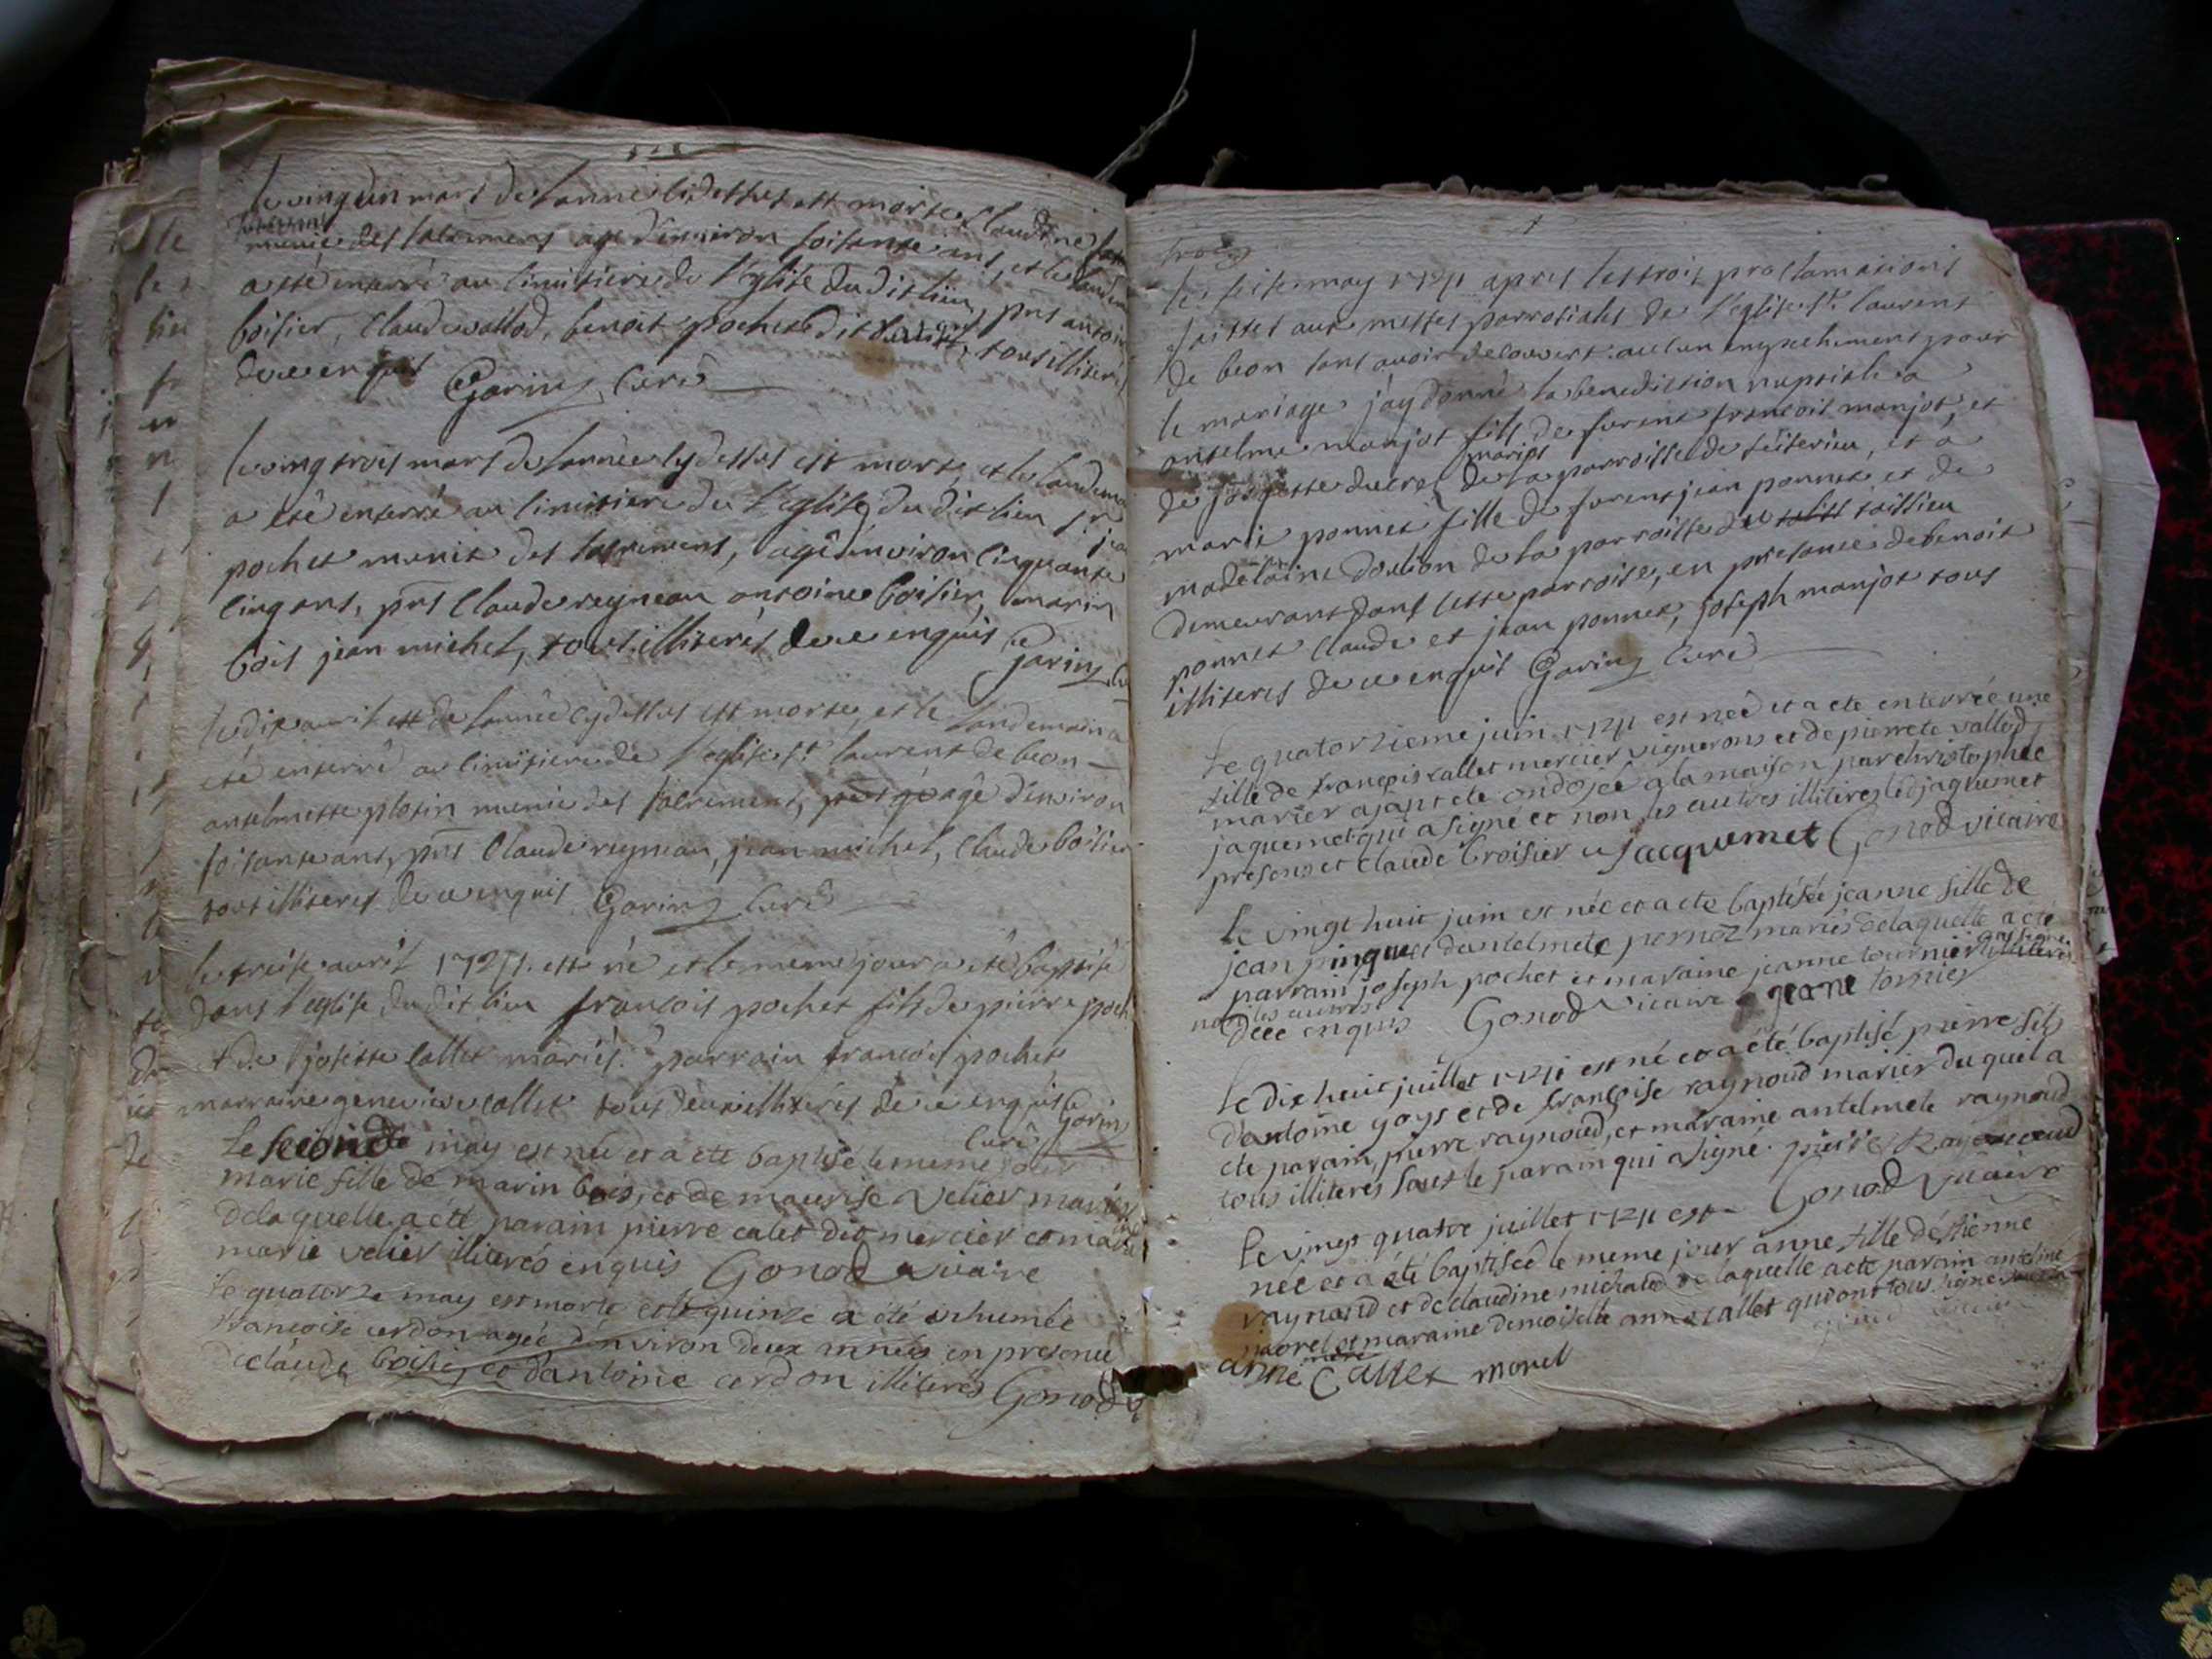 le vingt un mars de l'année cidessus est morte Claudine
munie des sacremens agé d'environ soisante ans, et le landem
a eté enterré au cimitiere de l'eglise du dit lieu, pns antoin
boisier, Claude vallod, benoit pochet dit tous illiterés
de ce enquis Garin, curé
le ving trois mars de l'année cy dessus est mort, et le landema
a eté enterré au cimitiere de l'eglise du dit lieu
pochet munit des sacremens, agé d'environ cinquante
cinq ans, pns Claude reyneau antoine boisier, marin
bois jean michel, tous illiterés de ce enquis
Garin, cu
le dix avril de l'année cy dessus est morte, et le landemain a
eté enterré au cimitiere de l'eglise st laurent de beon
antelmette plosin munie des sacremens, agé d'environ
soisante ans, pns Claude reyneau, jean michel, Claude boisier
tous illiterés de ce enquis Garin, curé
le treise avril est né et le meme jour a eté baptisé
dans l'eglise du dit lieu françois pochet fils de pierre poch
et de josette callet mariés. parrain francois pochet
marraine genevieve callet tous deux illiterés de ce enquis Garin
curé
Le second may est née et a eté baptisé le meme jour
marie fille de marin bois, et de maurise velier mariés
de laquelle a eté parain pierre calet dit mercier et mara
marie velier illiterés enquis Gonod vicaire
le quatorze may est morte et le quinze a été inhumée
françoise cerdon agée d'environ deux années en presence
de claude boisier, et d'antoine cerdon illiterés Gonod v
le seise may apres les trois proclamations
faittes aux messes parrosiales de l'eglise st laurent
de beon sans avoir decouvert aucun empechement pour
le mariage j'ay donné la benediction nuptiale a
antelme manjot fils de furent francois manjot, et
de josette ducret mariés de la parroisse de seiterieu, et a
marie ponnet fille de furent jean ponnet et de
madelaine de la parroisse de toissieu
demeurant dans cette parroise, en presance de benoit
ponnet Claude et jean ponnet, joseph manjot tous
illiteres de ce enquis Garin, curé
Le quatorzieme juin est née et a eté enterrée une
fille de françois callet mercier vigneron et de pierrete vallod
marier ajant eté ondojée a la maison par christophle
jaquemet qui a signé et non les autres illiteres
presens et claude broisier jacquemet Gonod vicaire
Le vingt huit juin est née et a eté baptisée jeanne fille de
jean pinguet d'antelmete pernoz mariés de laquelle a eté
parrain joseph pochet et maraine jeanne tournier
non les autres
de ce enquis Gonod vicaire jeane tornier
Le dix heuit juillet est né et a été baptisé pierre fils
d'antoine goys et de françoise raynoud marier du quel a
eté parain, pierre raynoud, et maraine antelmete raynoud
tous illiteres sauf le parain qui a signé. pierre Raynoud
Gonod vicaire
Le vingt quatre juillet est
née et a été baptisée le meme jour anne fille d'estienne
raynoud et de claudine michaud de laquelle a eté parain antelme
morel et maraine demoiselle anne callet qui ont tous signé
anne Callet morel